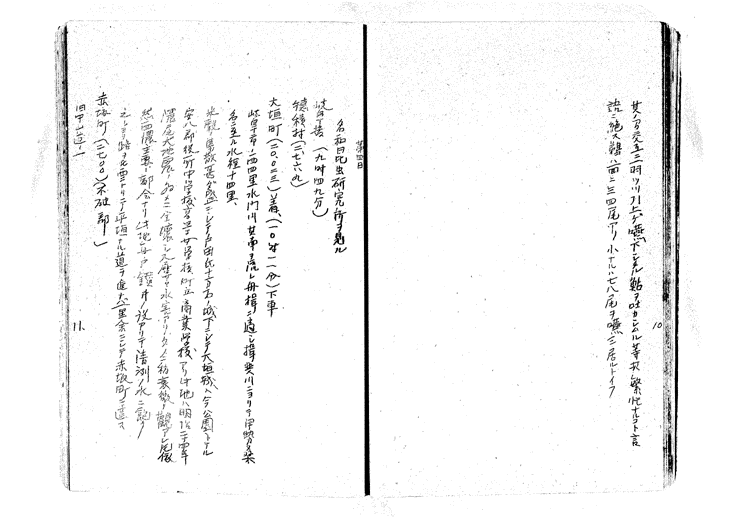 其ノ間交互ニ一羽ツツ引上ゲ嚥下シタル鮎ヲ吐カシムル等其繁忙ナルコト言
語ニ絶ス鵜ハ一面ニ三四尾アリ小ナルハ七八尾ヲ嚥ミ居ルトイフ
10
第四日
名和昆虫研究所ヲ見ル
岐阜発(九時四九分)
穂積村(三、七六九)
大垣町(二〇、〇二三)着(一〇時一一分)下車
岐阜市ノ西四里水門川其南ヲ流レ舟楫ニ便シ揖斐川ニヨリテ伊勢桑
名ニ至ル水程十四里、
米穀ノ集散甚ダ盛ニシテ戸田氏十万石ノ城下ニシテ大垣城ハ今公園トナル
安八郡役所中学校高等女学校町立商業学校アリ此地ハ明治二十四年
濃尾大地震ノ為メニ全壊シ又屡々水害アリタメニ稍衰微ノ観アレ尾依
然西濃主要ノ都会ナリ此地舟戸鑿井ノ設アリテ清冽ノ水ニ
之レヨリ路ヲ北西ニトリテ平坦ナル道ヲ進ム一里余ニシテ赤坂町ニ達ス
赤坂町(三七〇〇)(不破郡)
旧中山道ノ一
11.